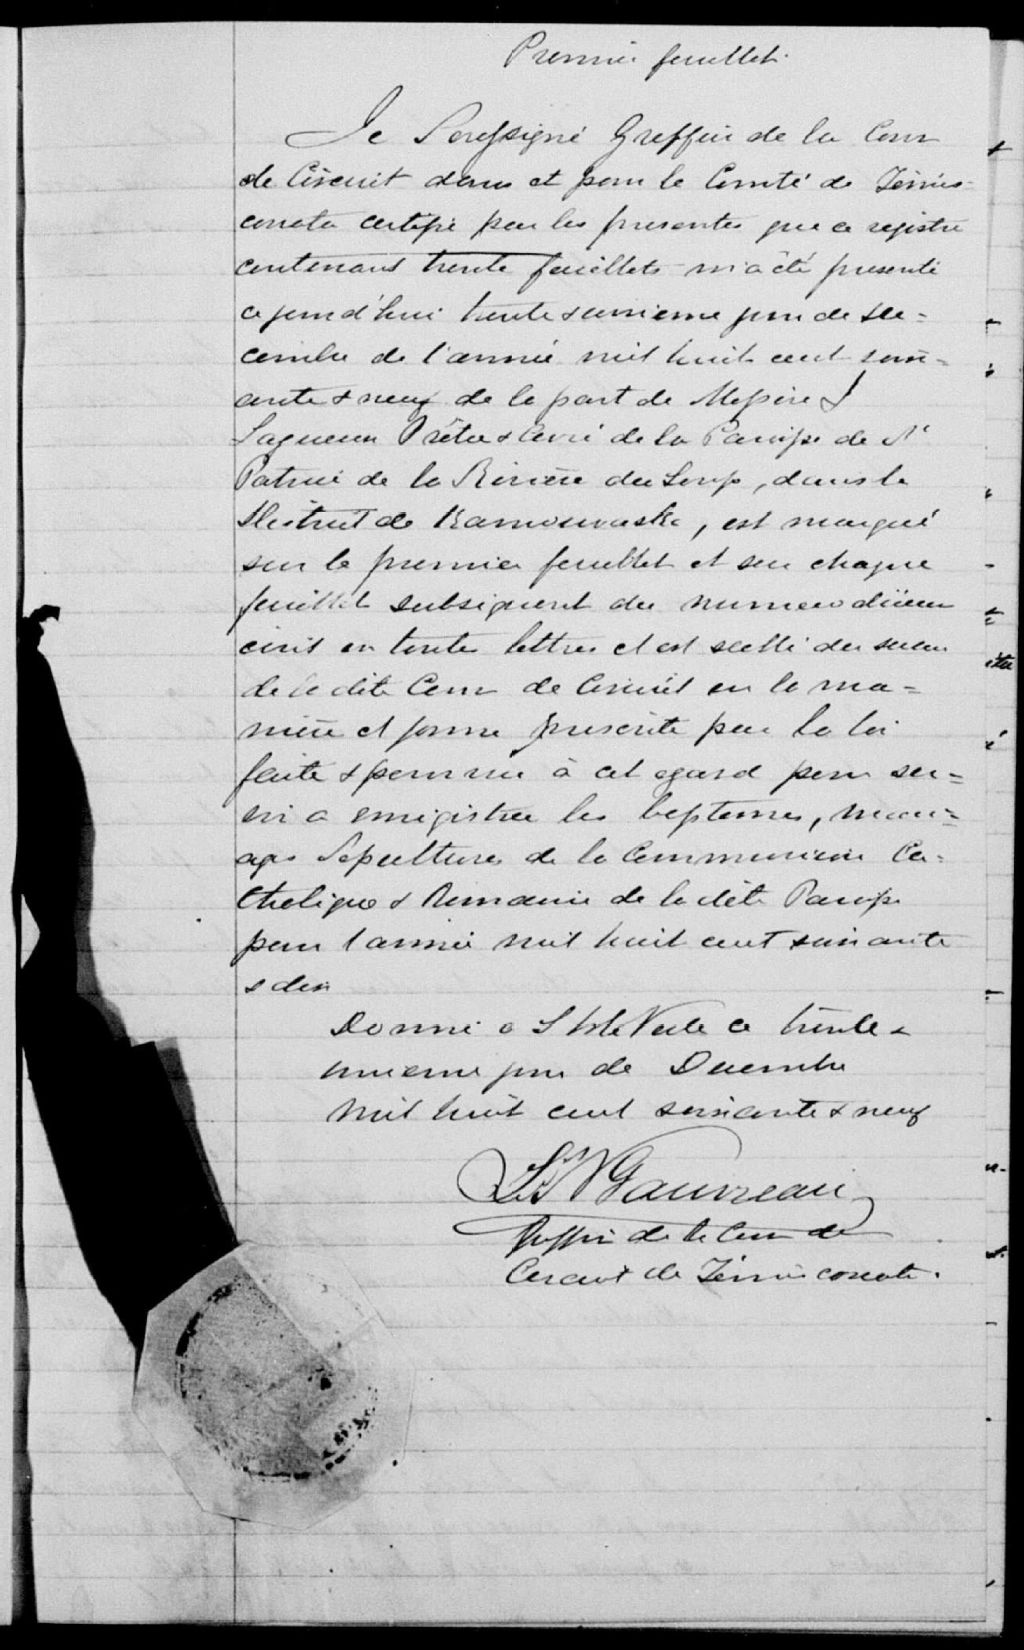 Premier feuillet.
Je Soussigné Greffier de la Cour
de Circuit dans et pour le Comté de Témis-
couata certifie par les presentes que ce registre
contenant trente feuillets m'a été presenté
ce jourd'hui trente & unieme jour de De-
cembre de l'année mil huit cent soix-
ante & neuf de la part de Messire
Lagueux Prêtre & Curé de la Paroisse de St
Patrice de la Rivière du Loup, dans le
District de Kamouraska, est marqué
sur le premier feuillet et sur chaque
feuillet subsequent du numero d'icelui
écrit en toutes lettres et est scellé du sceau
de la dite Cour de Circuit en la ma-
nière et forme prescrite par la loi
faite & pourvue à cet egard pour ser-
vir a enregistrer les baptemes, mari-
ages Sepultures de la Communion Ca-
tholique & Romaine de la dite Paroisse
pour l'année mil huit cent soixante
& dix
Donné a Isle Verte ce trente &
unieme jour de Decembre
mil huit cent soixante & neuf
Gauvreau
Greffier de la Cour de
Circuit de Témiscouata.